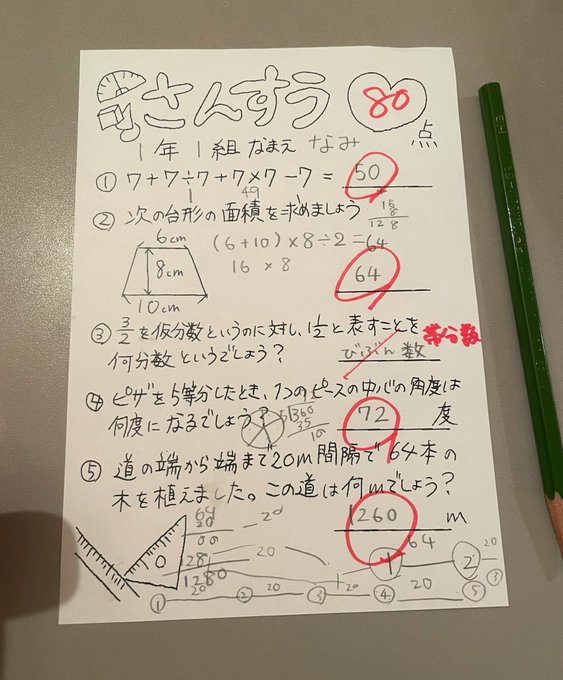 さんすう 80点
1年 1組 なまえ なみ
① 7+7÷7+7×7-7= 50
1 49
② 次の台形の面積を求めましょう
16
8
128
6cm (6+10)×8÷2=64
8cm 16×8
10cm 64
③ 3/2を仮分数というのに対し、1 1/2と表すことを 帯分数
何分数というでしょう? びぶん数
④ ピザを5等分したとき、1つのピースの中心の角度は
何度になるでしょう? 72度
5 360
35
10
⑤ 道の端から端まで20m間隔で64本の
木を植えました。この道は何mでしょう?
1260 m
64
20
00
128
1280
-20
20
0
64
① ② 20
③
20 20 20 20
① ② ③ ④ ⑤